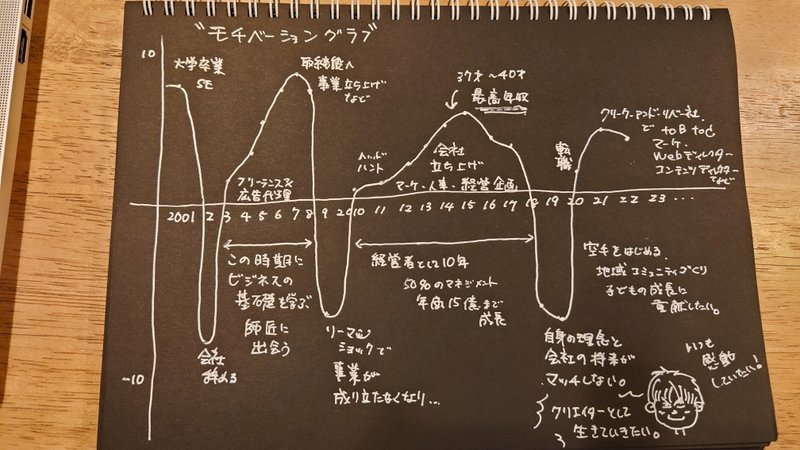 "モチベーショングラフ"
10
大学卒業
SE
取締役へ
事業立ち上げ
など
37才〜40才
最高年収
クリーク・アンド・リバー社
で toB toC
マーケ
Webディレクター
コンテンツディレクター
など
ヘッド
ハント
会社
立ち上げ
マーケ・人事・経営企画
転職
広告代理
2001 2 3 4 5 6 7 8 9 2010 11 12 13 14 15 16 17 18 19 20 21 22 23 ...
この時期に
ビジネスの
基石楚を学ぶ
師匠に
出会う
経営者として10年
50名のマネジメント
年商15億まで
成長
空手をはじめる
地域コミュニティづくり
子どもの成長に
貢献したい。
会社
辞める
リーマン
ショックで
事業が
成り立たなくなり...
自身の理念と
会社の将来が
マッチしない。
クリエイターとして
生きていきたい。
いつも
感動
していたい!
-10